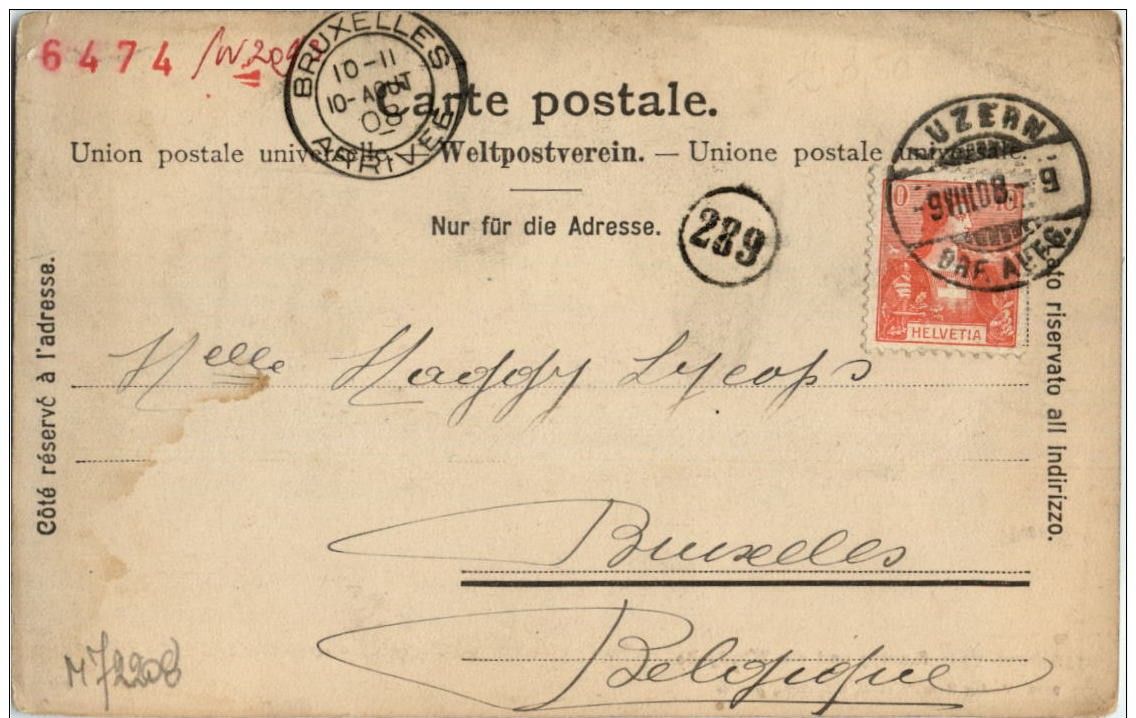 6474
BRUXELLES
10-11
10-AOUT
08
ARRIVÉE
Carte postale.
Union postale universelle. — Weltpostverein. — Unione postale universale.
Nur für die Adresse.
289
LUZERN
9.VIII.08.-9
BRF. AUFG.
10 10
HELVETIA
Côté réservé à l'adresse.
Lato riservato all indirizzo.
Melle Maggy Lycops
Bruxelles
Belgique
M72208